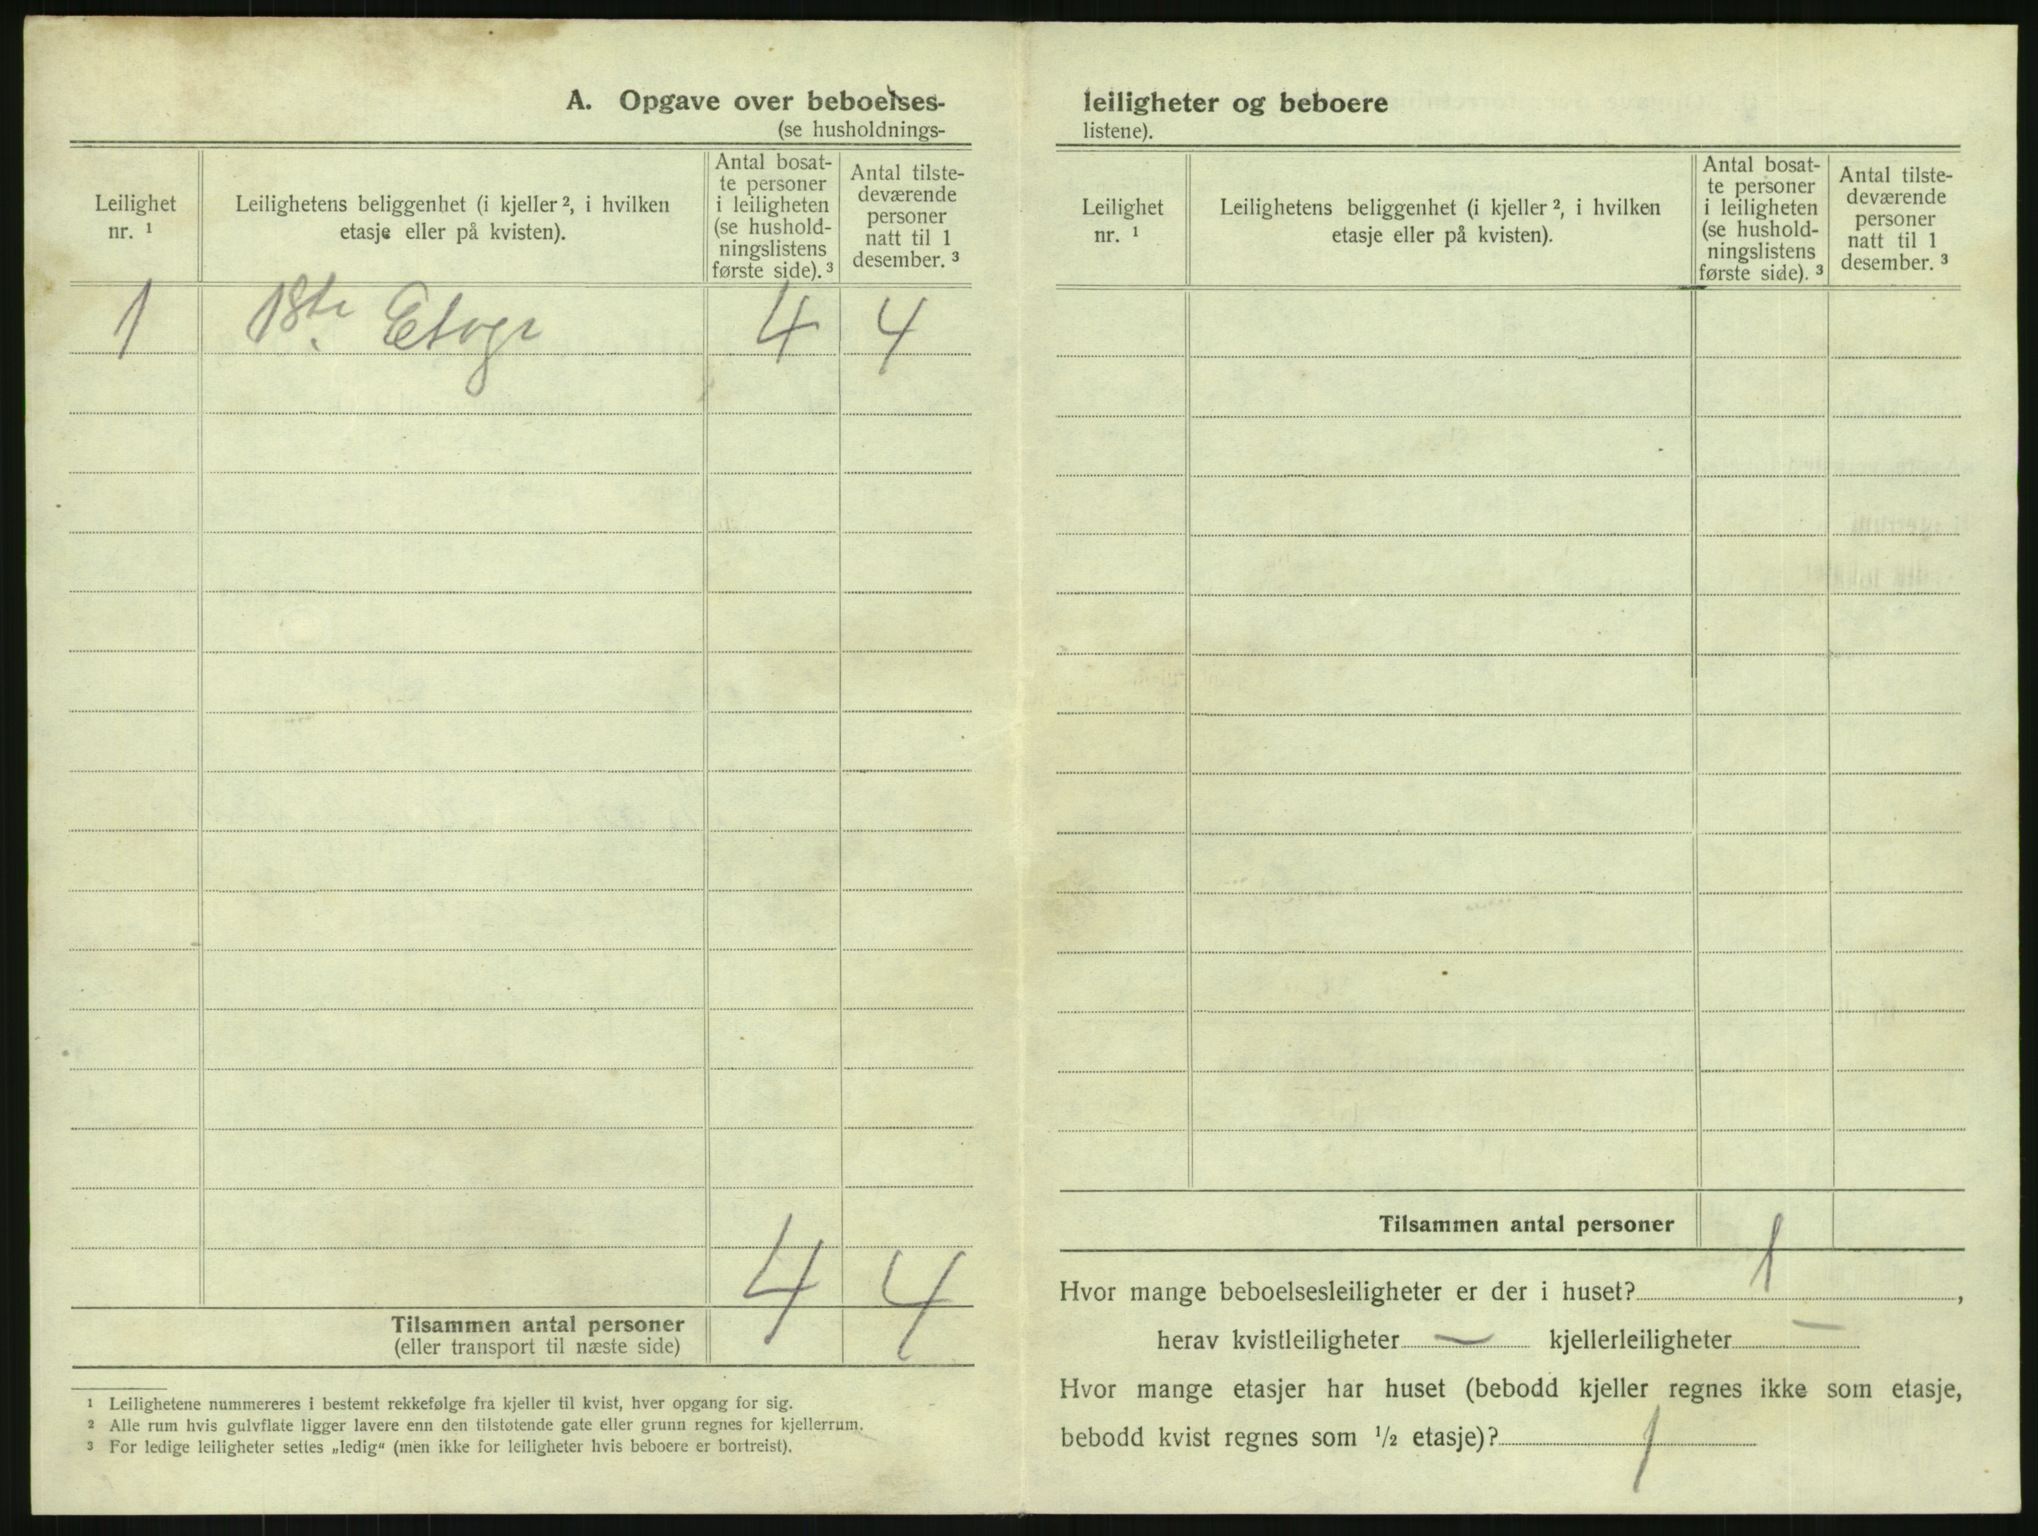 A. Opgave over beboelses-
(se husholdnings-
Leilighet nr. ¹
Leilighetens beliggenhet (i kjeller ², i hvilken
etasje eller på kvisten).
Antal bosat-
te personer
i leiligheten
(se hushold-
ningslistens
første side). ³
Antal tilste-
deværende
personer
natt til 1
desember. ³
1 1ste Etage 4 4
4 4
Tilsammen antal personer
(eller transport til næste side)
¹ Leilighetene nummereres i bestemt rekkefølge fra kjeller til kvist, hver opgang for sig.
² Alle rum hvis gulvflate ligger lavere enn den tilstøtende gate eller grunn regnes for kjellerrum.
³ For ledige leiligheter settes „ledig“ (men ikke for leiligheter hvis beboere er bortreist).
leiligheter og beboere
listene).
Leilighet nr. ¹
Leilighetens beliggenhet (i kjeller ², i hvilken
etasje eller på kvisten).
Antal bosat-
te personer
i leiligheten
(se hushold-
ningslistens
første side). ³
Antal tilste-
deværende
personer
natt til 1
desember. ³
Tilsammen antal personer
Hvor mange beboelsesleiligheter er der i huset? 1,
herav kvistleiligheter — kjellerleiligheter —
Hvor mange etasjer har huset (bebodd kjeller regnes ikke som etasje,
bebodd kvist regnes som ½ etasje)? 1